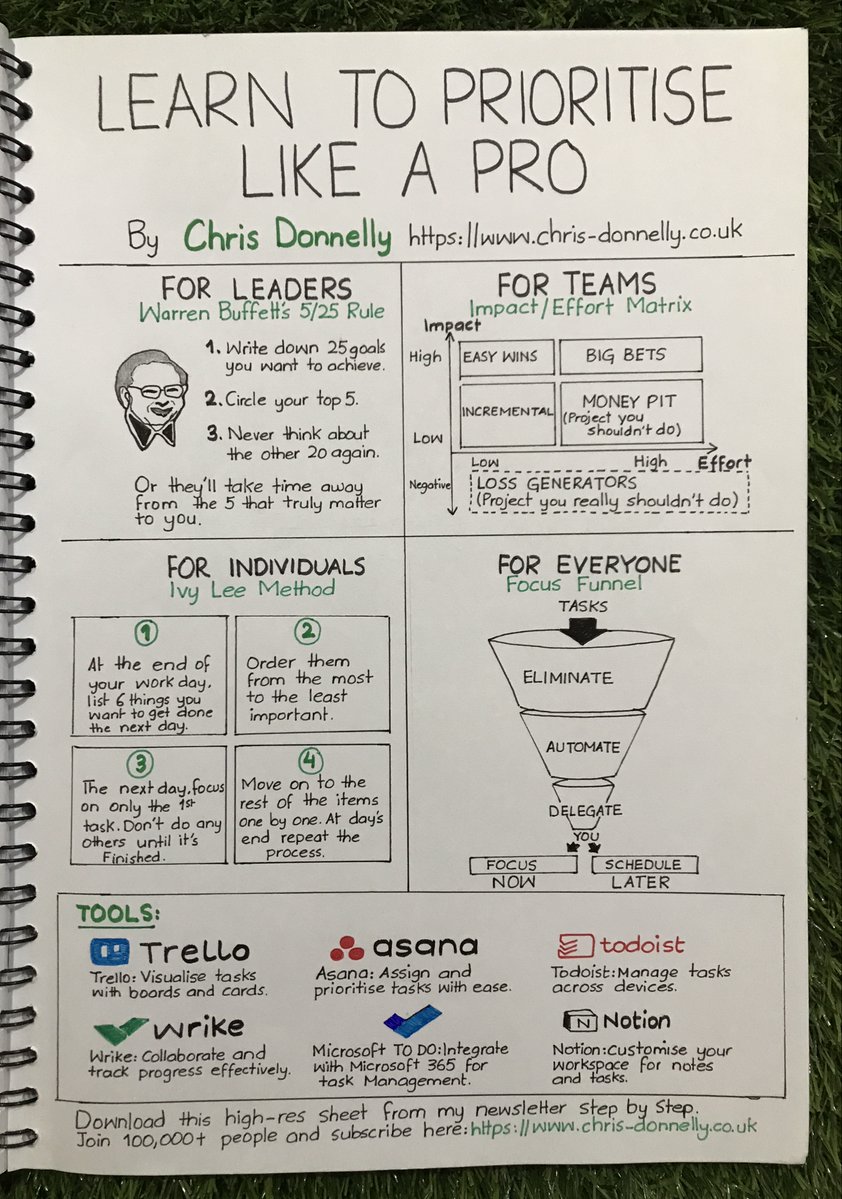 LEARN TO PRIORITISE
LIKE A PRO
By Chris Donnelly https://www.chris-donnelly.co.uk
FOR LEADERS
Warren Buffett's 5/25 Rule
1. Write down 25 goals
you want to achieve.
2. Circle your top 5.
3. Never think about
the other 20 again.
Or they'll take time away
from the 5 that truly matter
to you.
FOR TEAMS
Impact/Effort Matrix
Impact
High
EASY WINS
BIG BETS
INCREMENTAL
MONEY PIT
(Project you
shouldn't do)
Low
Low
High
Effort
Negative
LOSS GENERATORS
(Project you really shouldn't do)
FOR INDIVIDUALS
Ivy Lee Method
1
At the end of
your work day,
list 6 things you
want to get done
the next day.
2
Order them
from the most
to the least
important.
3
The next day, focus
on only the 1st
task. Don't do any
others until it's
Finished.
4
Move on to the
rest of the items
one by one. At day's
end repeat the
process.
FOR EVERYONE
Focus Funnel
TASKS
ELIMINATE
AUTOMATE
DELEGATE
YOU
FOCUS
SCHEDULE
NOW
LATER
TOOLS:
Trello
Trello: Visualise tasks
with boards and cards.
asana
Asana: Assign and
prioritise tasks with ease.
todoist
Todoist: Manage tasks
across devices.
wrike
Wrike: Collaborate and
track progress effectively.
Microsoft TO DO: Integrate
with Microsoft 365 for
task Management.
N Notion
Notion: Customise your
workspace for notes
and tasks.
Download this high-res sheet from my newsletter step by Step.
Join 100,000+ people and subscribe here: https://www.chris-donnelly.co.uk